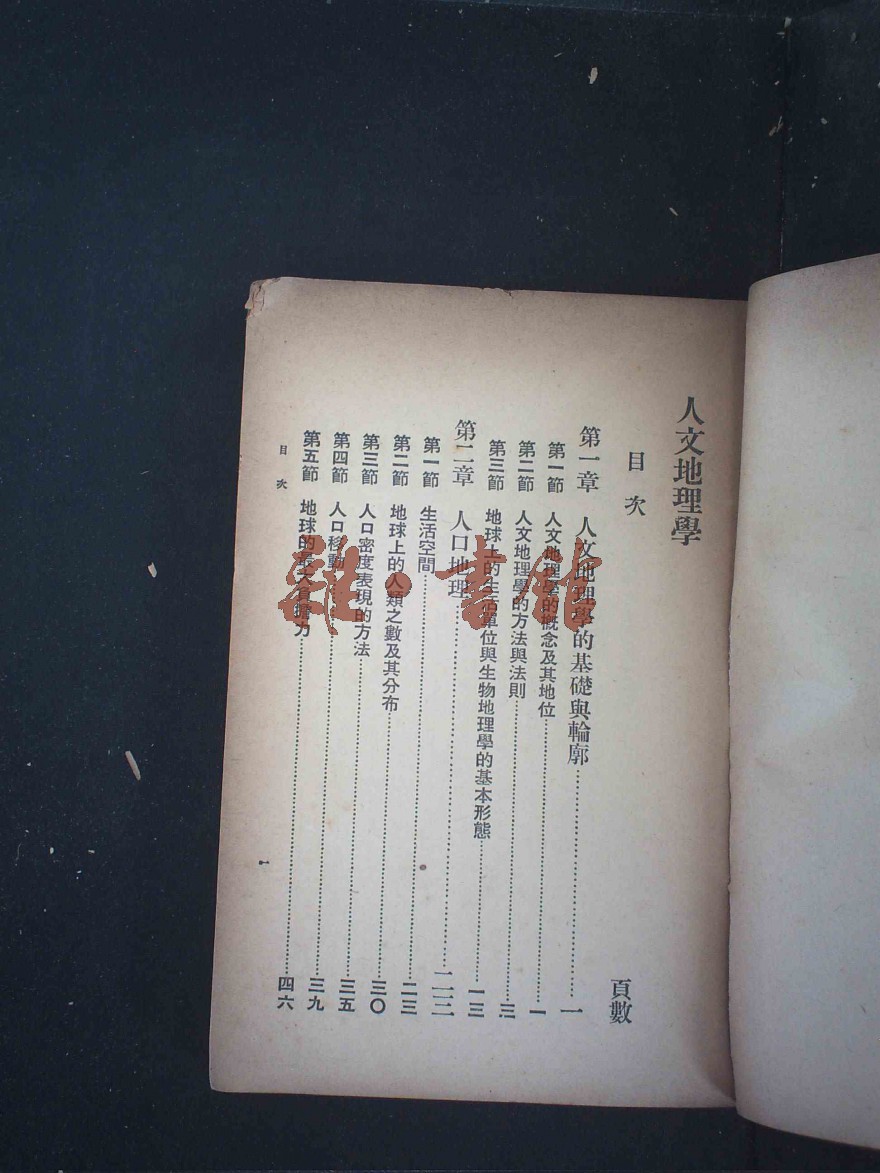 人文地理學
目次
頁數
第一章 人文地理學的基礎與輪廓……一
第一節 人文地理學的概念及其地位……一
第二節 人文地理學的方法與法則……三
第三節 地球上的生活單位與生物地理學的基本形態……一三
第二章 人口地理……二三
第一節 生活空間……二三
第二節 地球上的人類之數及其分布……三〇
第三節 人口密度表現的方法……三五
第四節 人口移動……三九
第五節 地球的最大負擔力……四六
目次
一
雜·書館